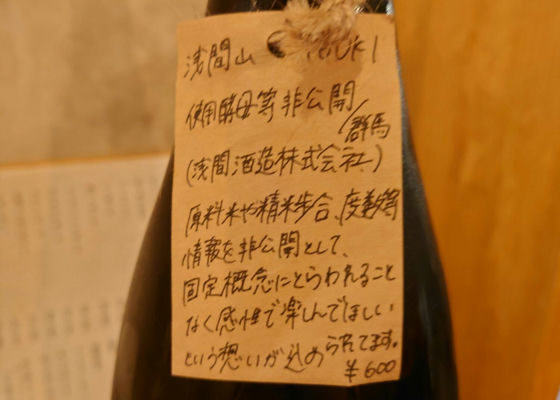 浅間山
使用酵母等非公開
/群馬
(浅間酒造株式会社)
原料米や精米歩合、度数等
情報を非公開として、
固定概念にとらわれること
なく感性で楽しんでほしい
という想いが込められてます。
¥600